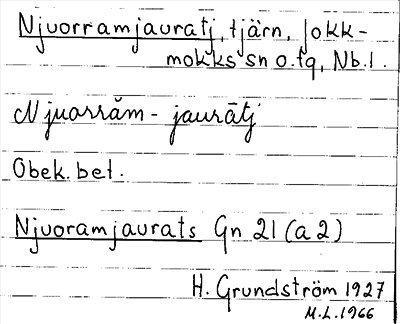 Njuorramjauratj, tjärn, Jokk-
mokks sn o. tg, Nb.l.
Njuorrăm - jaurātj
Obek. bet.
Njuoramjaurats Gn 21 (a 2)
H. Grundström 1927
M.L. 1966